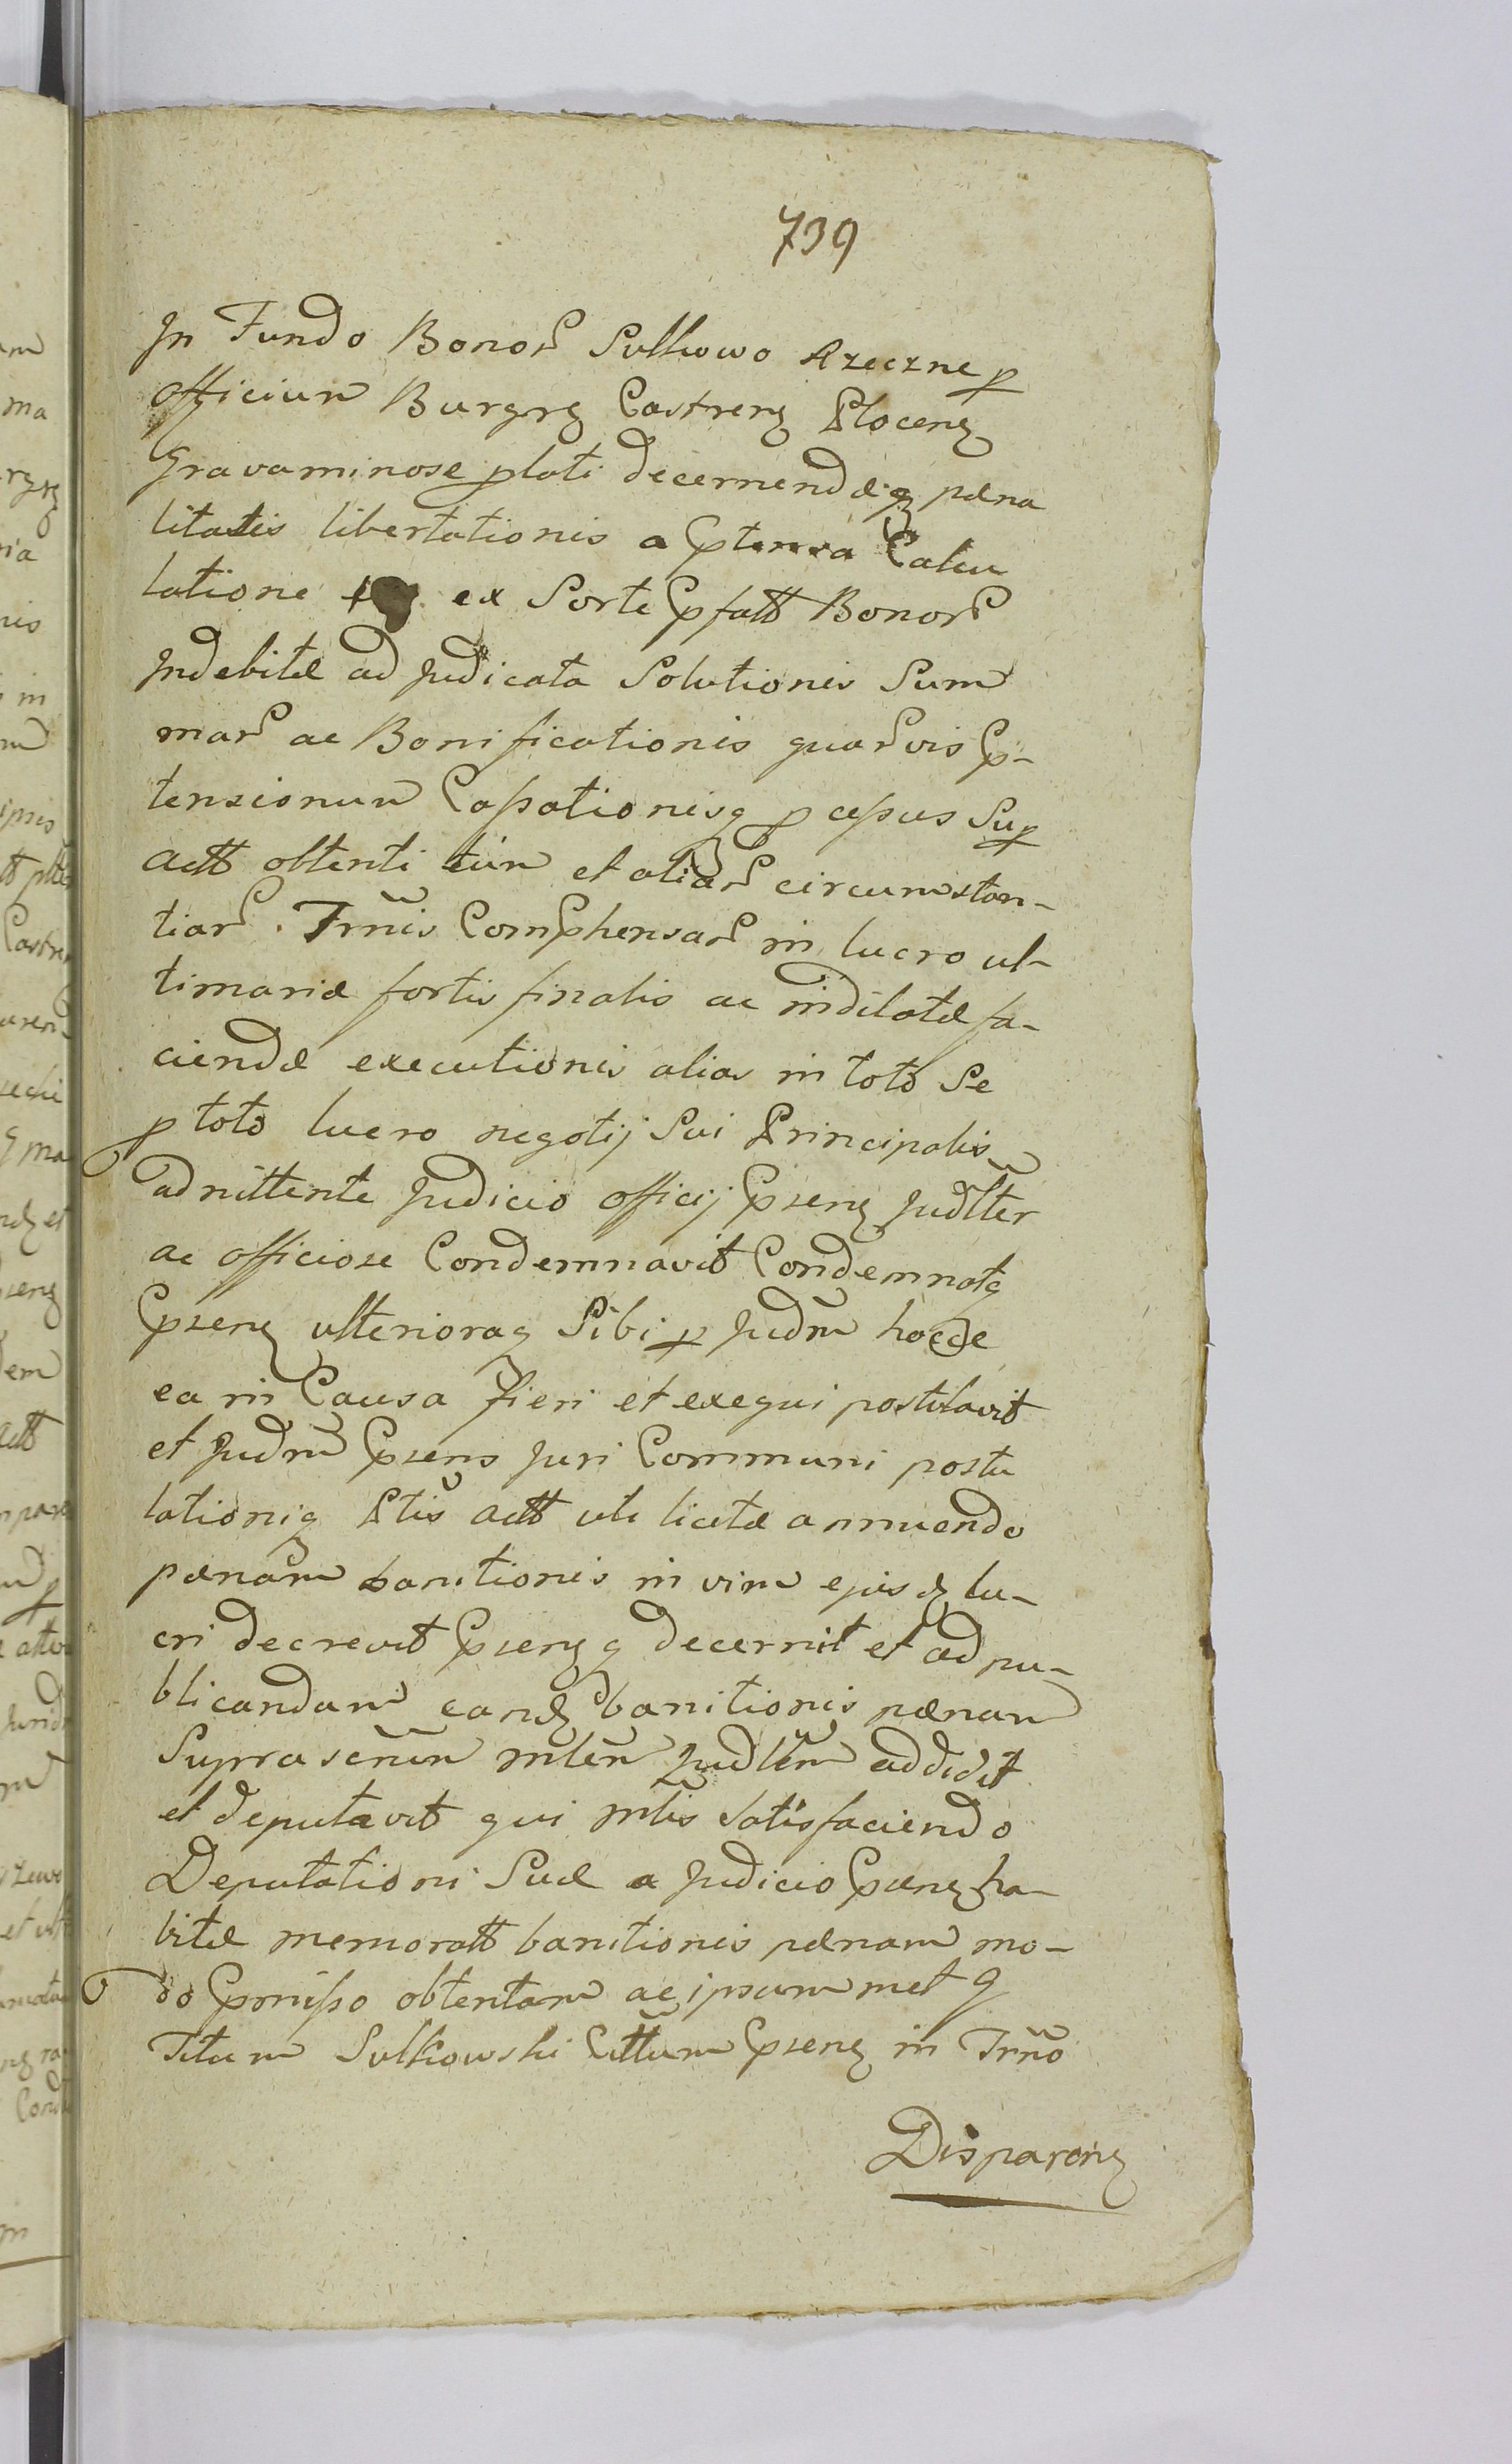 739
In Fundo Bonor Sulkowo Rzeczne p
officium Burgrg Castreng Ploceng
Gravaminose plati decernendæq pæna
litatis libertationis a Cptensa Calcu
latione ex Sorte Cpfatt Bonor
Indebitæ adjudicata Solutionis Sum
mar ac Bonificationis quarvis Cp-
tensionum Cassationisq p cessus Sup
actt obtenti tum et aliar circumstan-
tiar. Trñis Comphensar in lucro ul-
timariæ fortis finalis ac indilatæ fa-
ciendæ executionis alias in toto Se
p toto lucro negotij Sui Principalis
admittente Judicio officij Cpseng Judlter
ac officiose Condemnavit Condemnatq
Cpseng ulterioraq Sibi p Judm hocce
ea in Causa fieri et exequi postulavit
et Judm Cpsens Juri Communi postu
lationiq Ptis actt uti licitæ annuendo
pænam banitionis in vim ejusd lu-
cri decrevit Cpseng q decernit et ad pu-
blicandam eand banitionis pænam
Suprascrim mlem Judlem addidit
et deputavit qui mlis Satisfaciendo
Deputationi Suæ a Judicio Cpseng ha-
bitæ memoratt banitionis pænam mo-
do Cpmisso obtentam ac ipsummet G
Titum Sulkowski Cittum Cpseng in Trño
Dispareng